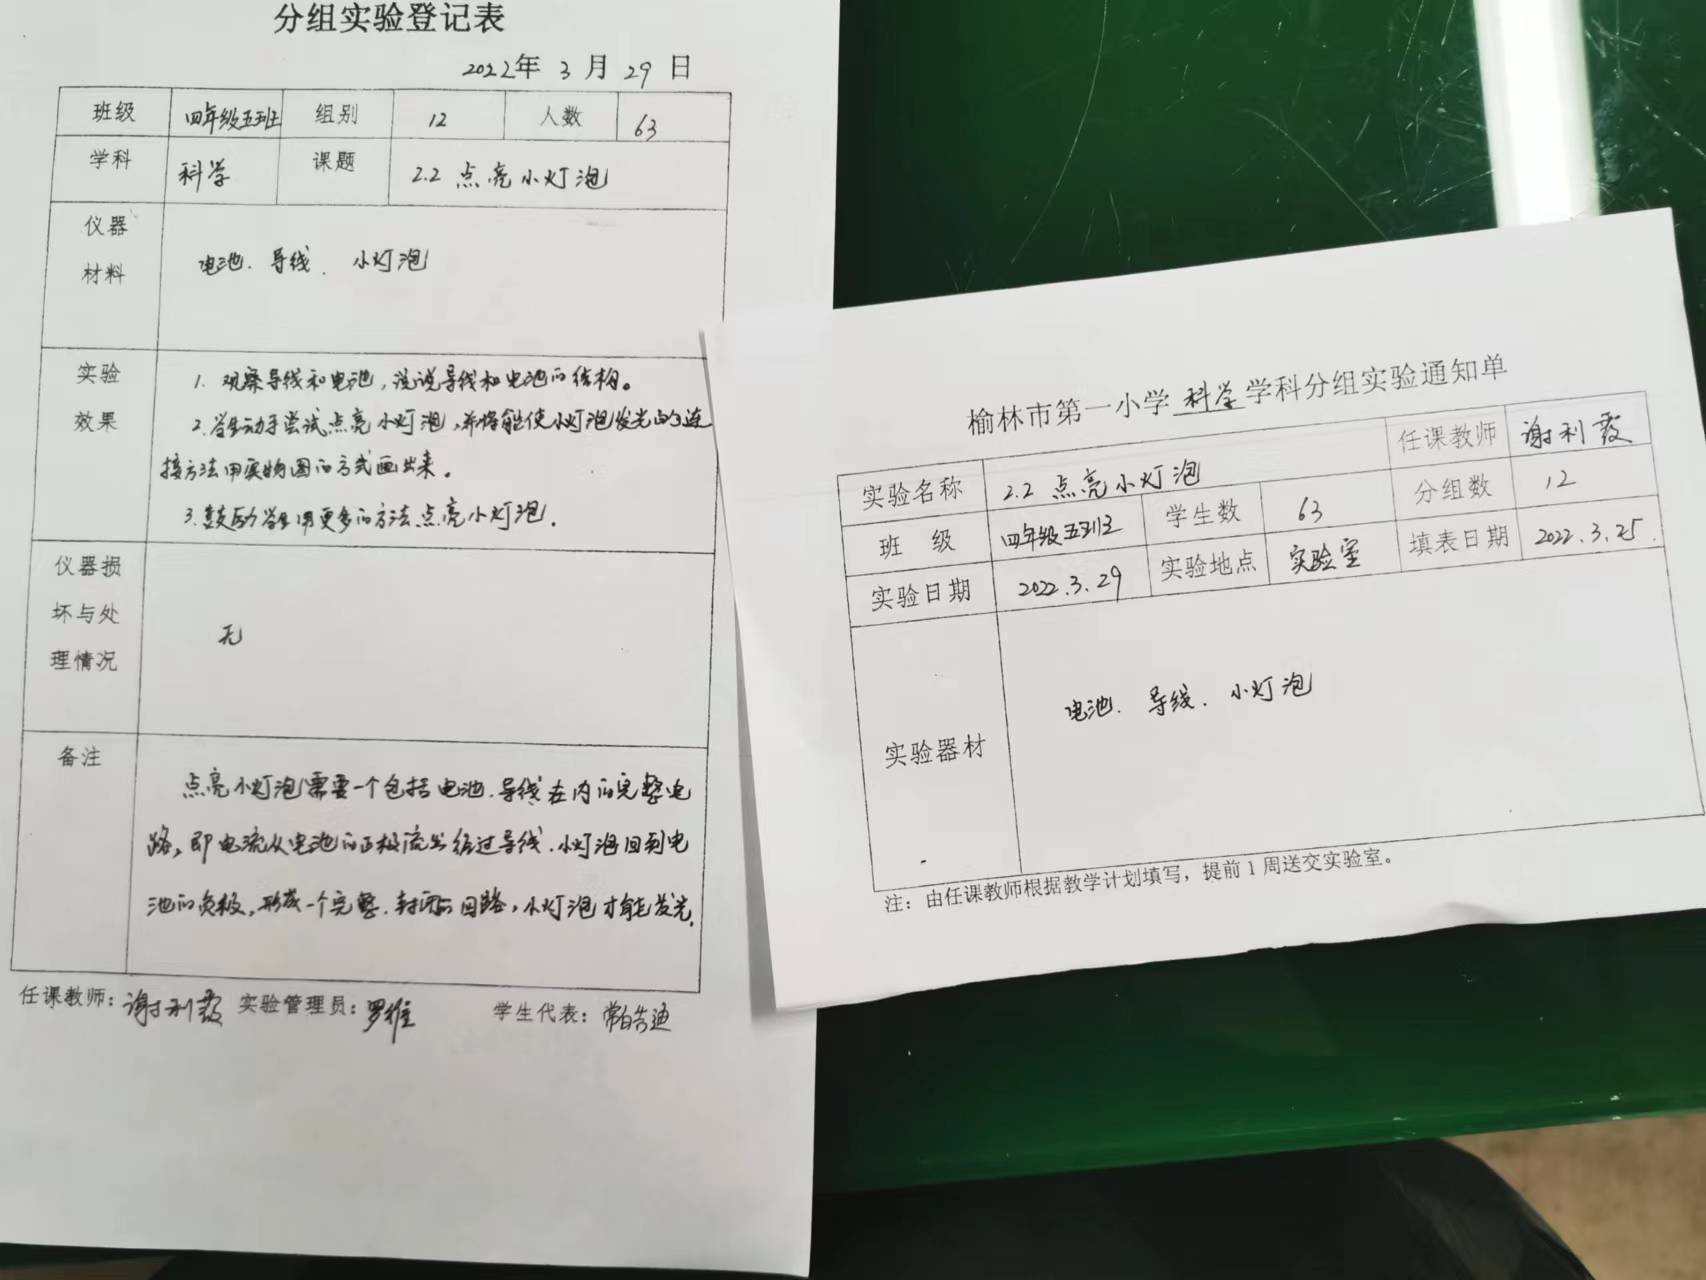 分组实验登记表
2022年 3 月 29 日
班级 四年级五班 组别 12 人数 63
学科 科学 课题 2.2 点亮小灯泡
仪器材料 电池、导线、小灯泡
实验效果
1. 观察导线和电池,说说导线和电池的结构。
2. 学生动手尝试点亮小灯泡,并将能使小灯泡发光的连
接方法用实物图的方式画出来。
3. 鼓励学生用更多的方法点亮小灯泡。
仪器损坏与处理情况 无
备注
点亮小灯泡需要一个包括电池、导线在内的完整电
路,即电流从电池的正极流出经过导线、小灯泡回到电
池的负极,形成一个完整、封闭的回路,小灯泡才能发光。
任课教师:谢利霞 实验管理员:罗维 学生代表:常皓迪
榆林市第一小学 科学 学科分组实验通知单
实验名称 2.2 点亮小灯泡 任课教师 谢利霞
班 级 四年级五班 学生数 63 分组数 12
实验日期 2022.3.29 实验地点 实验室 填表日期 2022.3.25.
实验器材 电池、导线、小灯泡
注:由任课教师根据教学计划填写,提前1周送交实验室。